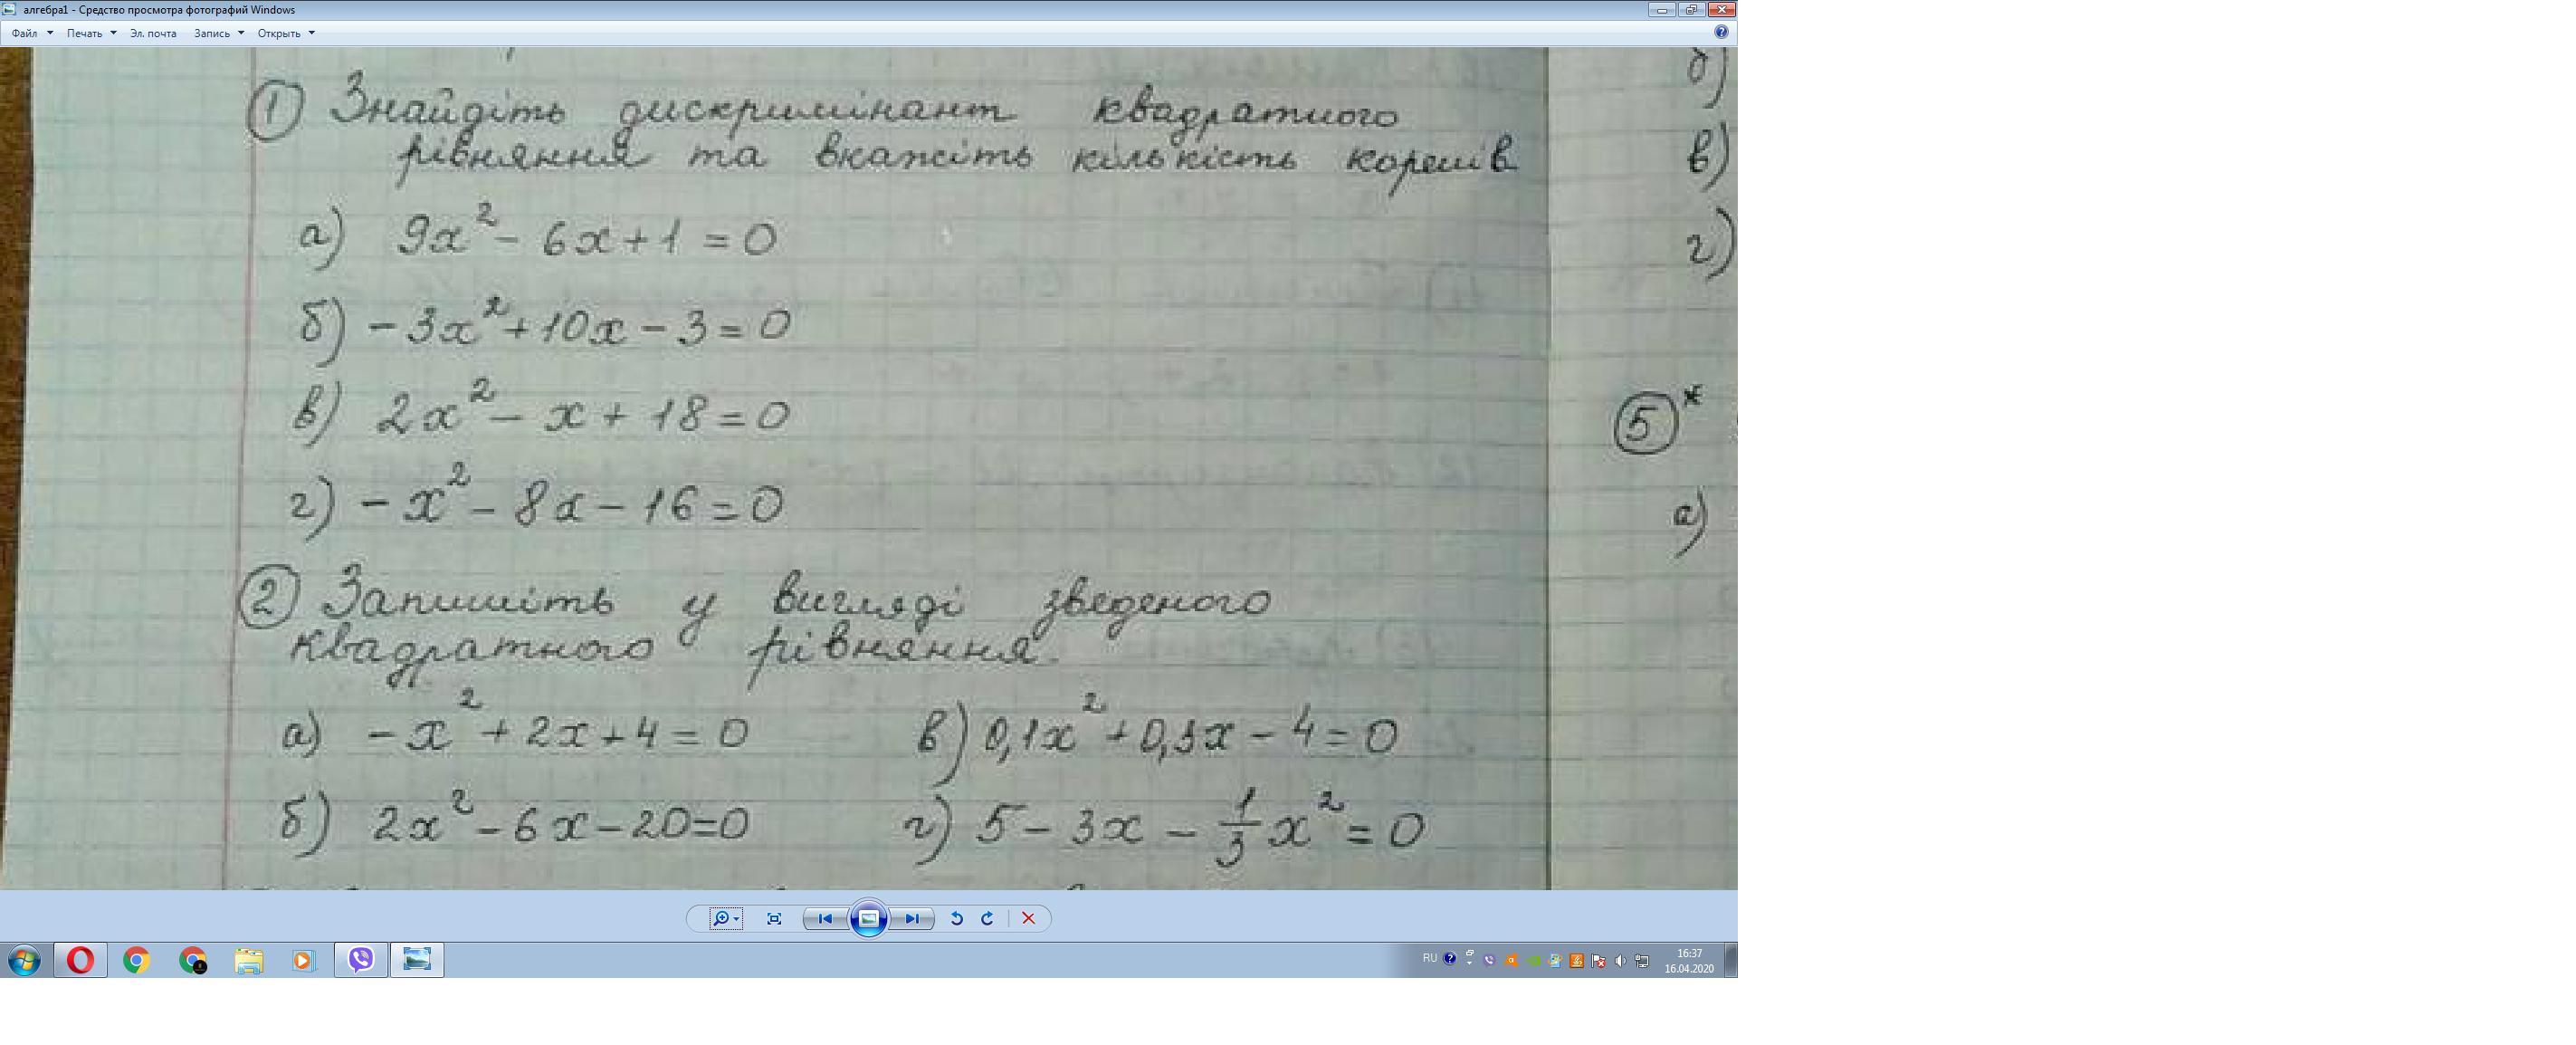 алгебра1 - Средство просмотра фотографий Windows
Файл Печать Эл. почта Запись Открыть
① Знайдіть дискримінант квадратного
рівняння та вкажіть кількість коренів
а) 9x² - 6x + 1 = 0
б) - 3x² + 10x - 3 = 0
в) 2x² - x + 18 = 0
г) - x² - 8x - 16 = 0
② Запишіть у вигляді зведеного
квадратного рівняння.
а) - x² + 2x + 4 = 0
в) 0,1x² + 0,3x - 4 = 0
б) 2x² - 6x - 20 = 0
г) 5 - 3x - 1/3 x² = 0
б)
в)
г)
⑤*
а)
RU
16:37
16.04.2020